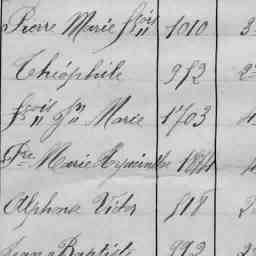 Pierre Marie fçois 1010 3
Théophile 952 2
fçois Marie 1703
Fre Marie Hyacinthe 1814
Alphonse Victor 818 2
Jean Baptiste 992 2